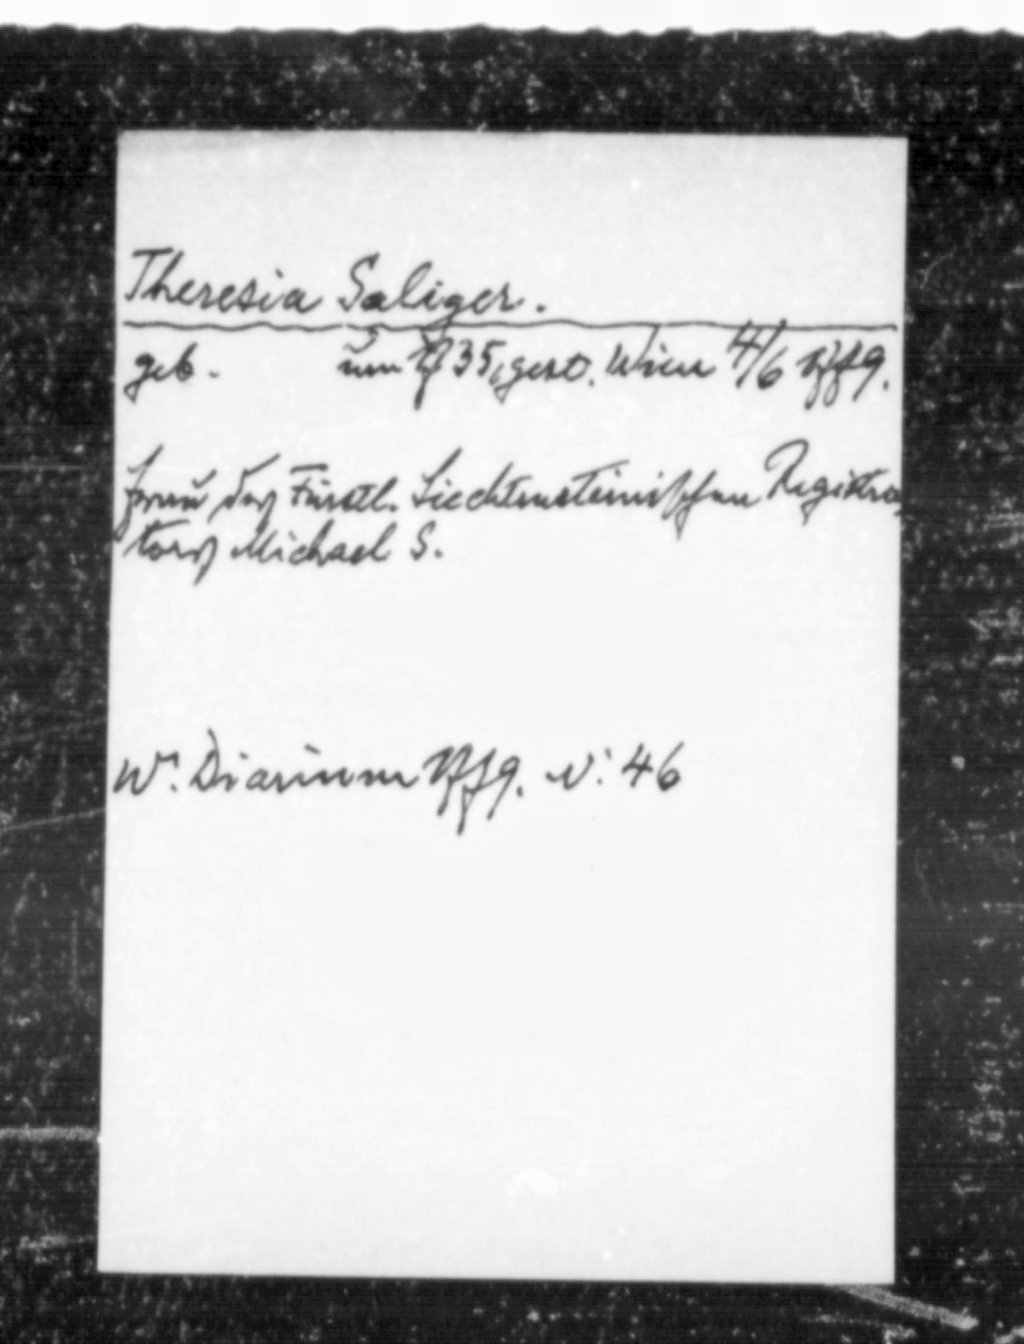 Theresia Saliger.
geb. um 1735, gest. Wien 4/6 1779.
Frau des Fürstl. Liechtensteinischen Registra-
tors Michael S.
Wr. Diarium 1779. N: 46